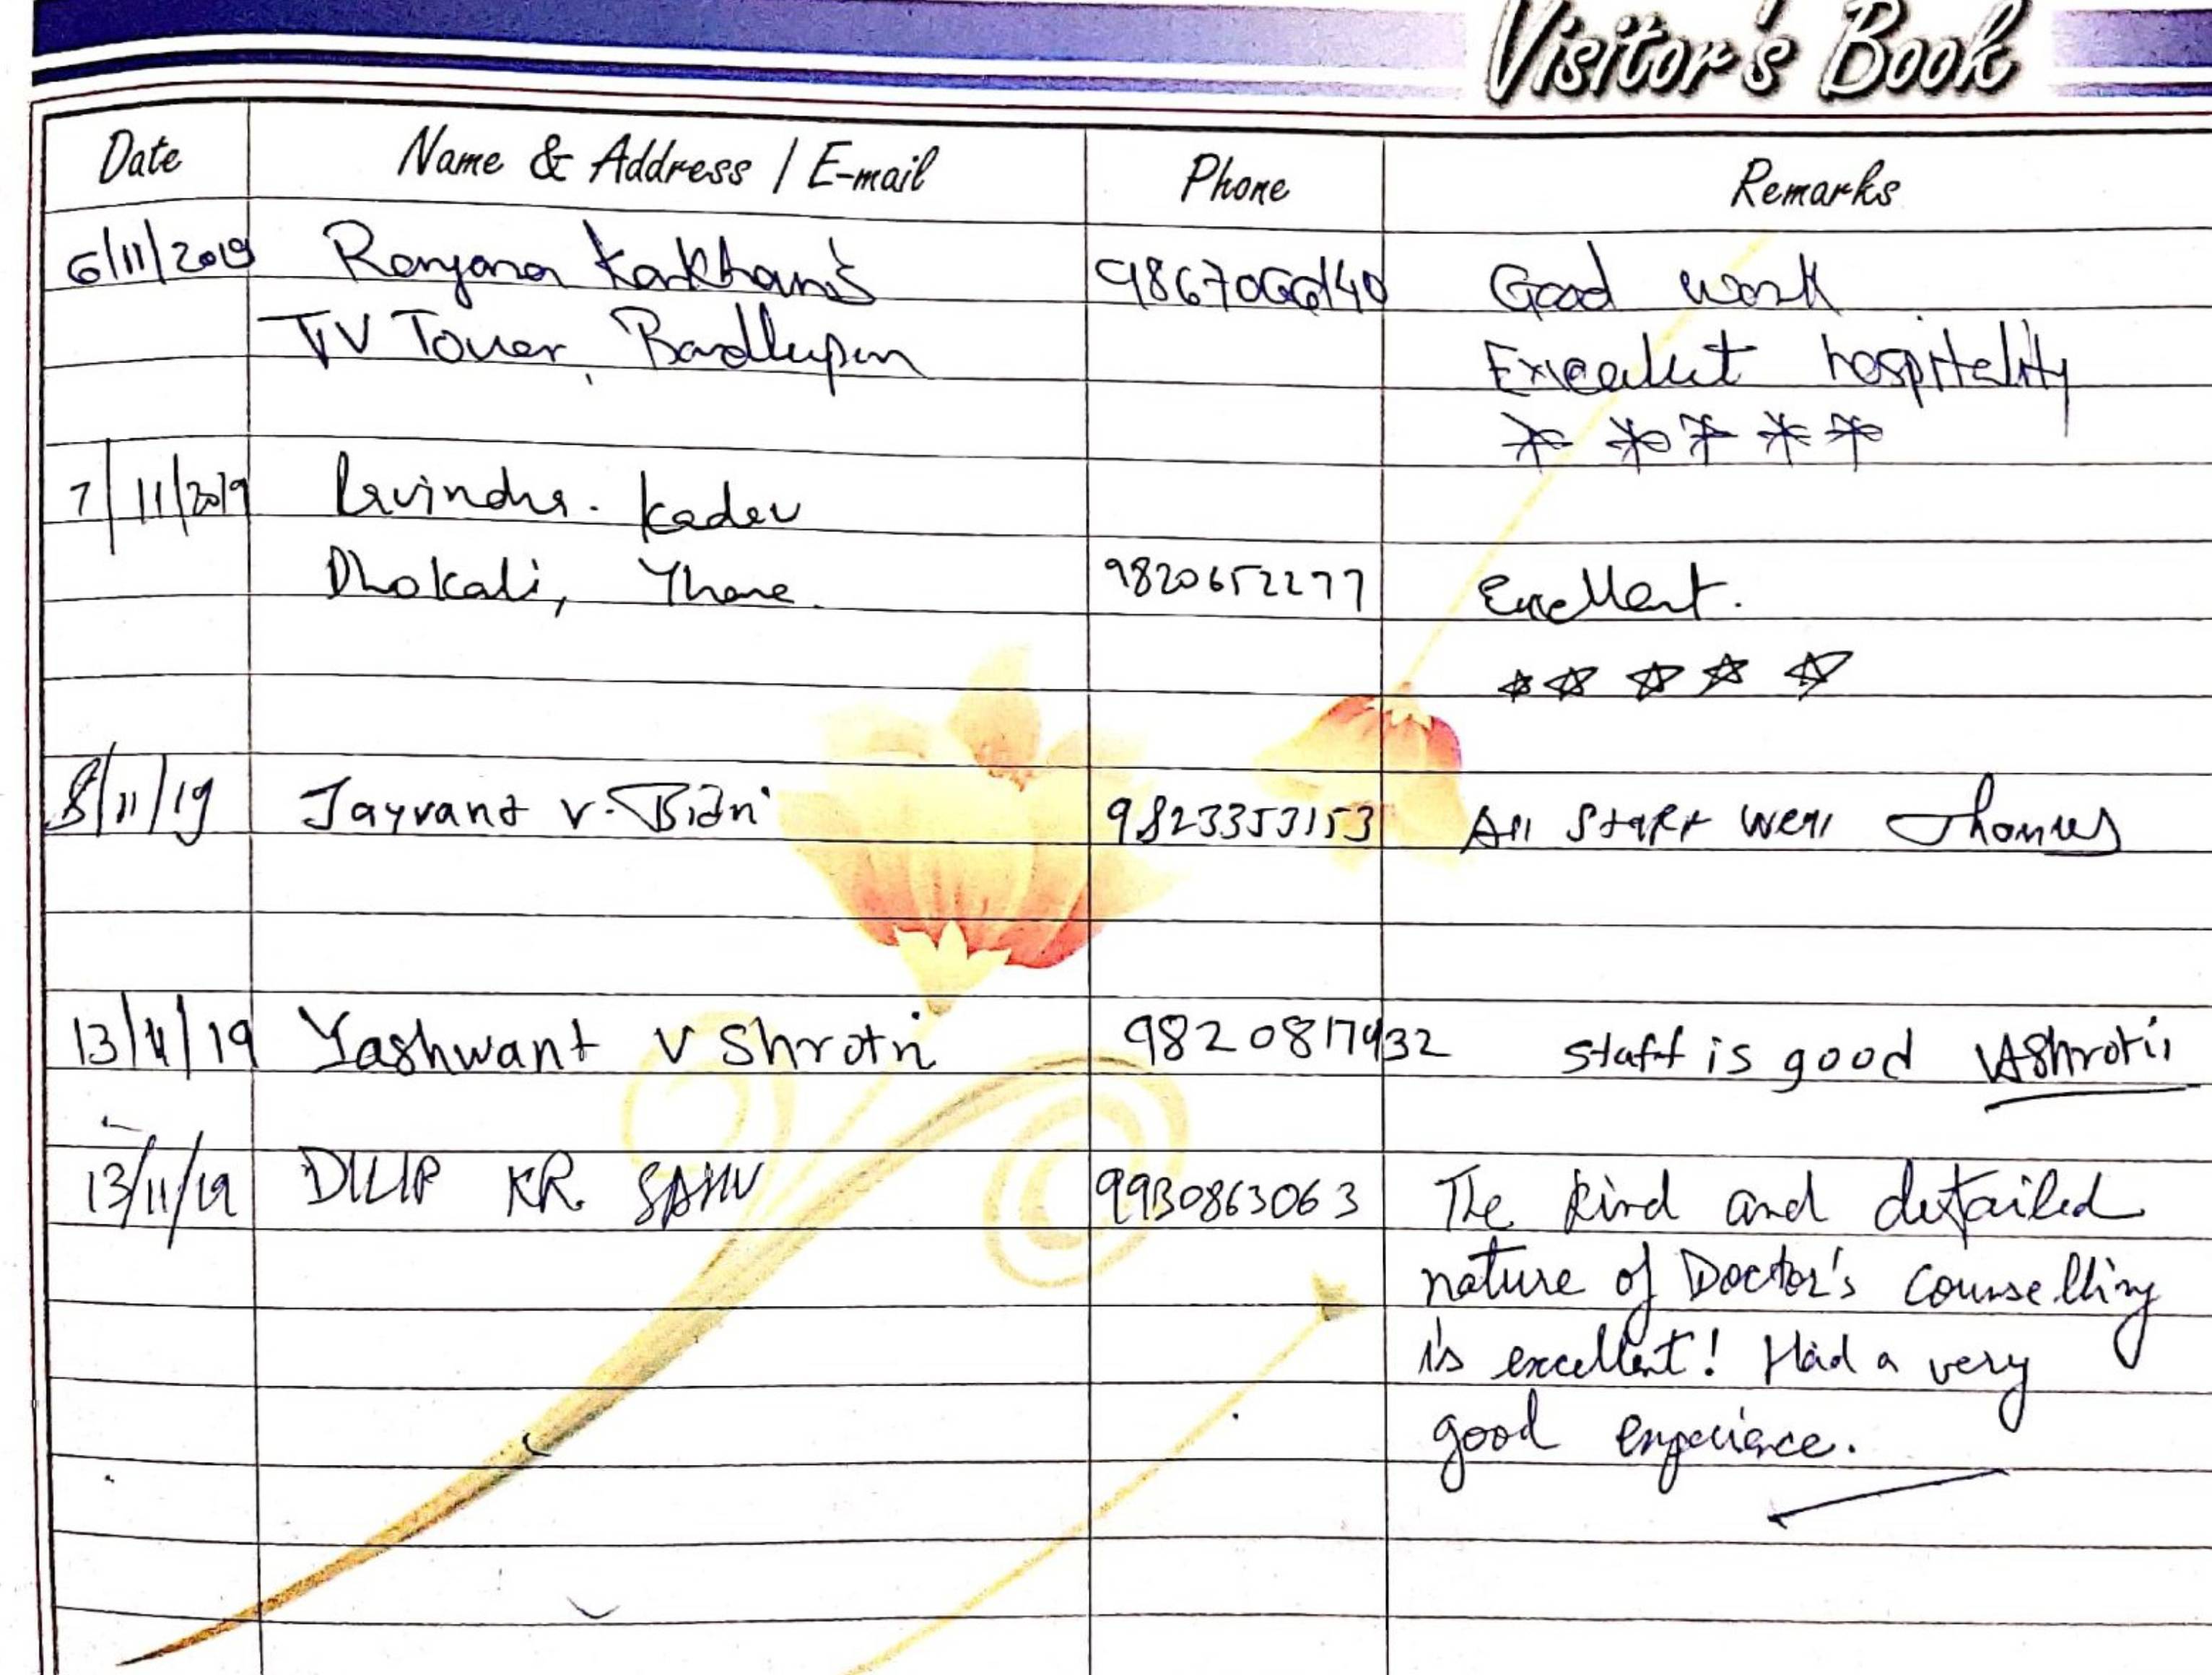 Visitor's Book
Date Name & Address / E-mail Phone Remarks
6/11/2019 Ranjana Karkhanis Good work
TV Tower, Badlapur Excellent hospitality
7/11/2019 Ravindra. Kadav
Dhokali, Thane. 9820652277 Excellent.
8/11/19 Jayvant V. 9823353153 All Staff well
13/11/19 Yashwant V Shrotri 9820817432 Staff is good VShrotri
13/11/19 DILIP KR. SAHU 9930863063 The kind and detailed
nature of Doctor's counselling
is excellent! Had a very
good experience.